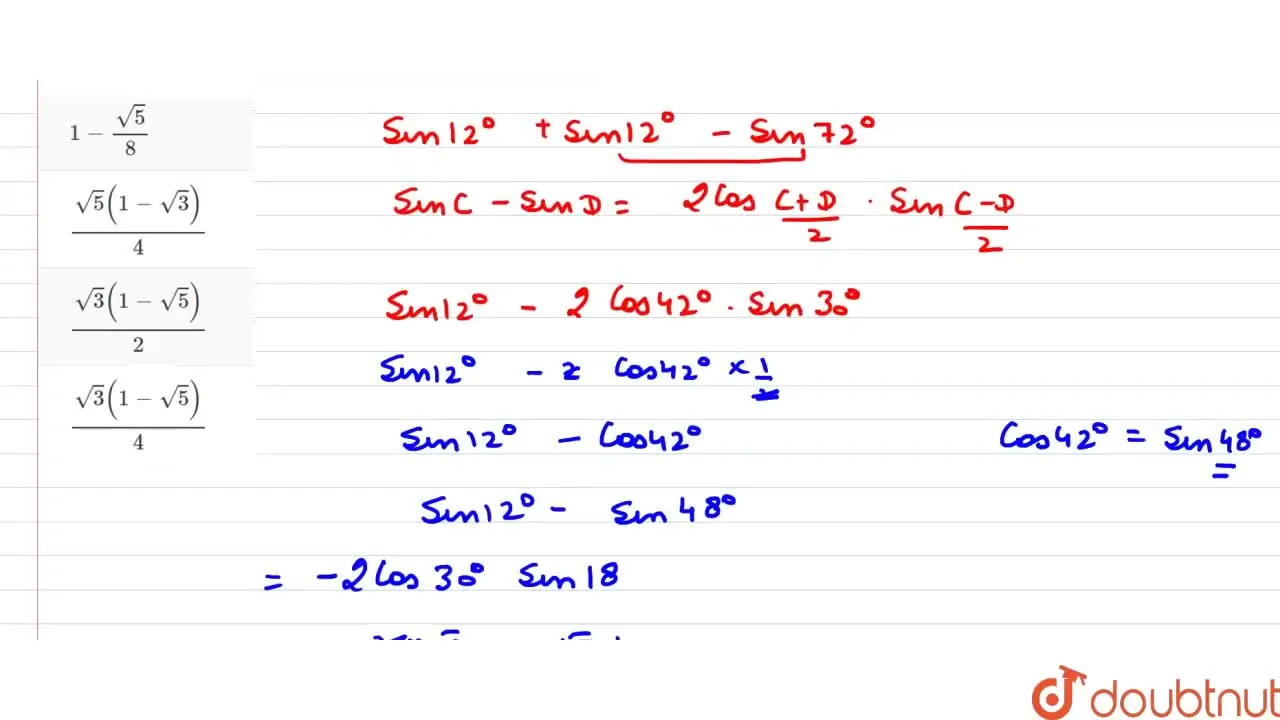 1 − √5/8
√5(1 − √3)/4
√3(1 − √5)/2
√3(1 − √5)/4
Sin12° + Sin12° − Sin72°
SinC − SinD = 2Cos (C+D)/2 . Sin (C−D)/2
Sin12° − 2 Cos42° . Sin30°
Sin12° − 2 Cos42° × 1/2
Sin12° − Cos42°
Cos42° = Sin48°
Sin12° − Sin48°
= −2Cos30° Sin18
doubtnut